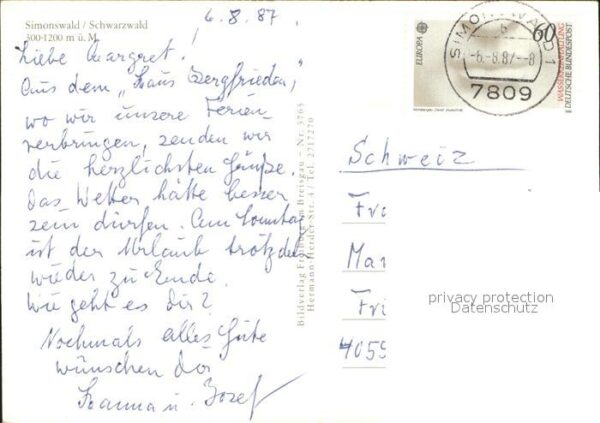 Simonswald / Schwarzwald
500-1200 m ü. M.
6.8.87.
Liebe Margret!
Aus dem „Haus Bergfrieden",
wo wir unsere Ferien
verbringen, senden wir
die herzlichsten Grüße.
Das Wetter hätte besser
sein dürfen. Am Sonntag
ist der Urlaub trotzdem
wieder zu Ende.
Wie geht es Dir?
Nochmals alles Gute
wünschen Dir
Hanna u. Josef
Bildverlag Freiburg im Breisgau – Nr. 3765
Hermann-Herder-Str. 4 / Tel. 2717270
EUROPA
60
WASSERREINHALTUNG
DEUTSCHE BUNDESPOST
SIMONSWALD 1
-6.-8.87--8
7809
Schweiz
Fr
Mar
Fri
4059
privacy protection
Datenschutz